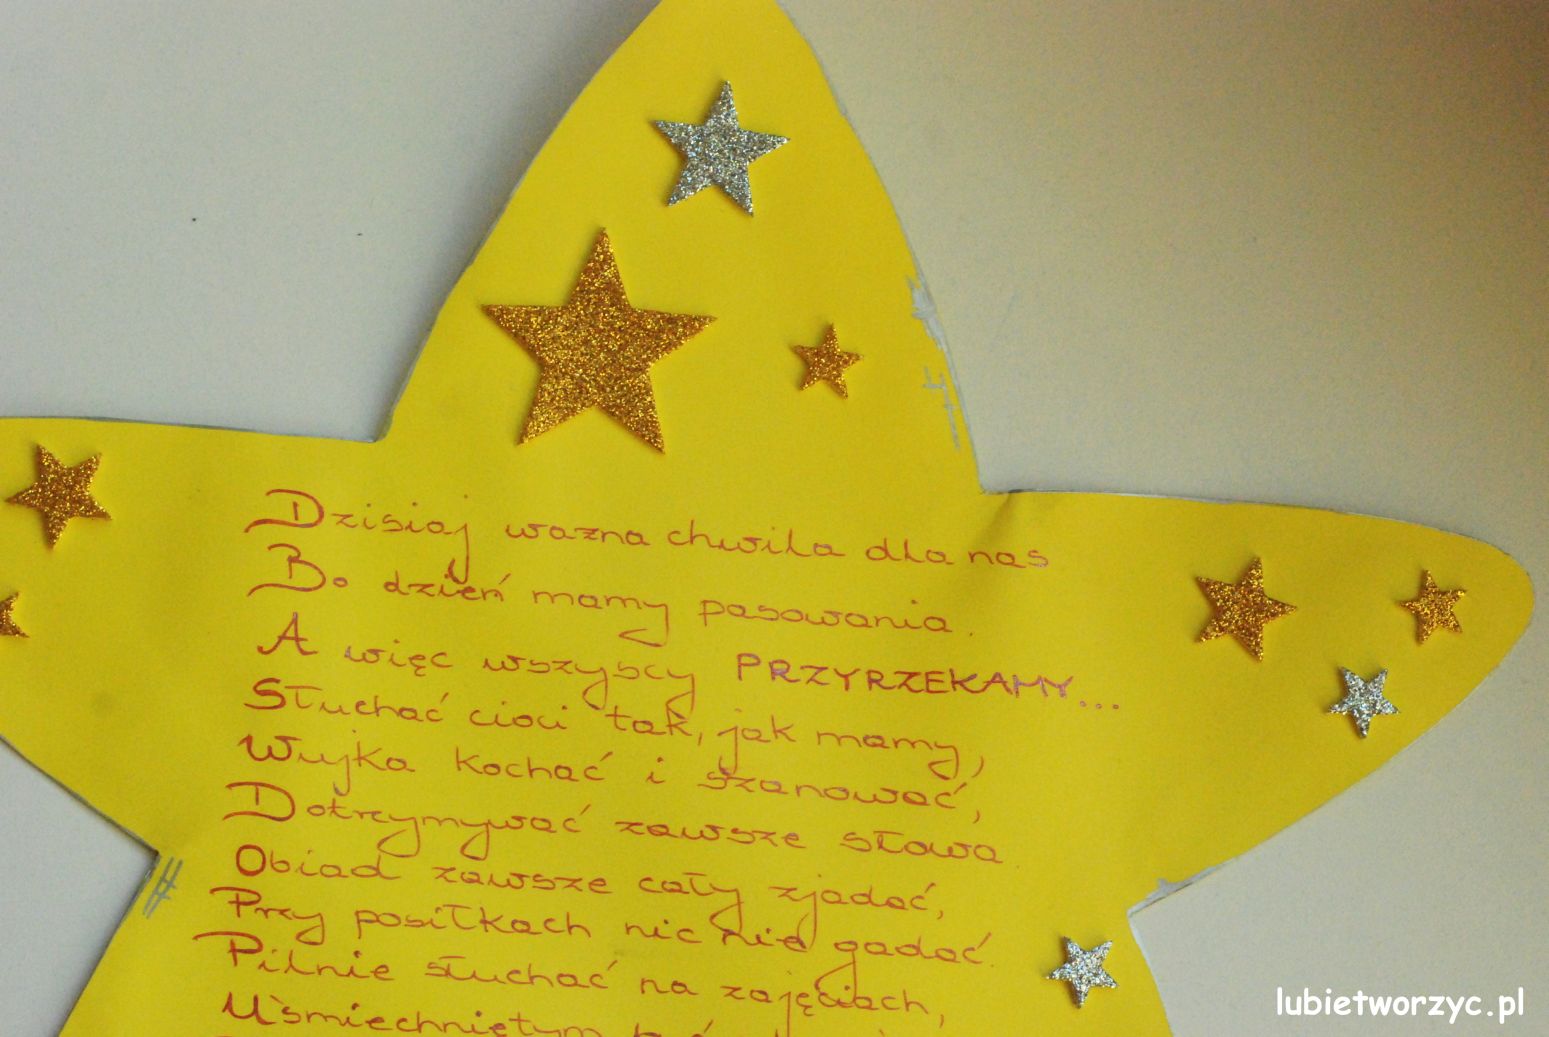 Dzisiaj ważna chwila dla nas
Bo dzień mamy pasowania.
A więc wszyscy PRZYRZEKAMY...
Słuchać cioci tak, jak mamy,
Wujka kochać i szanować,
Dotrzymywać zawsze słowa.
Obiad zawsze cały zjadać,
Przy posiłkach nic nie gadać.
Pilnie słuchać na zajęciach,
Uśmiechniętym być
lubietworzyc.pl